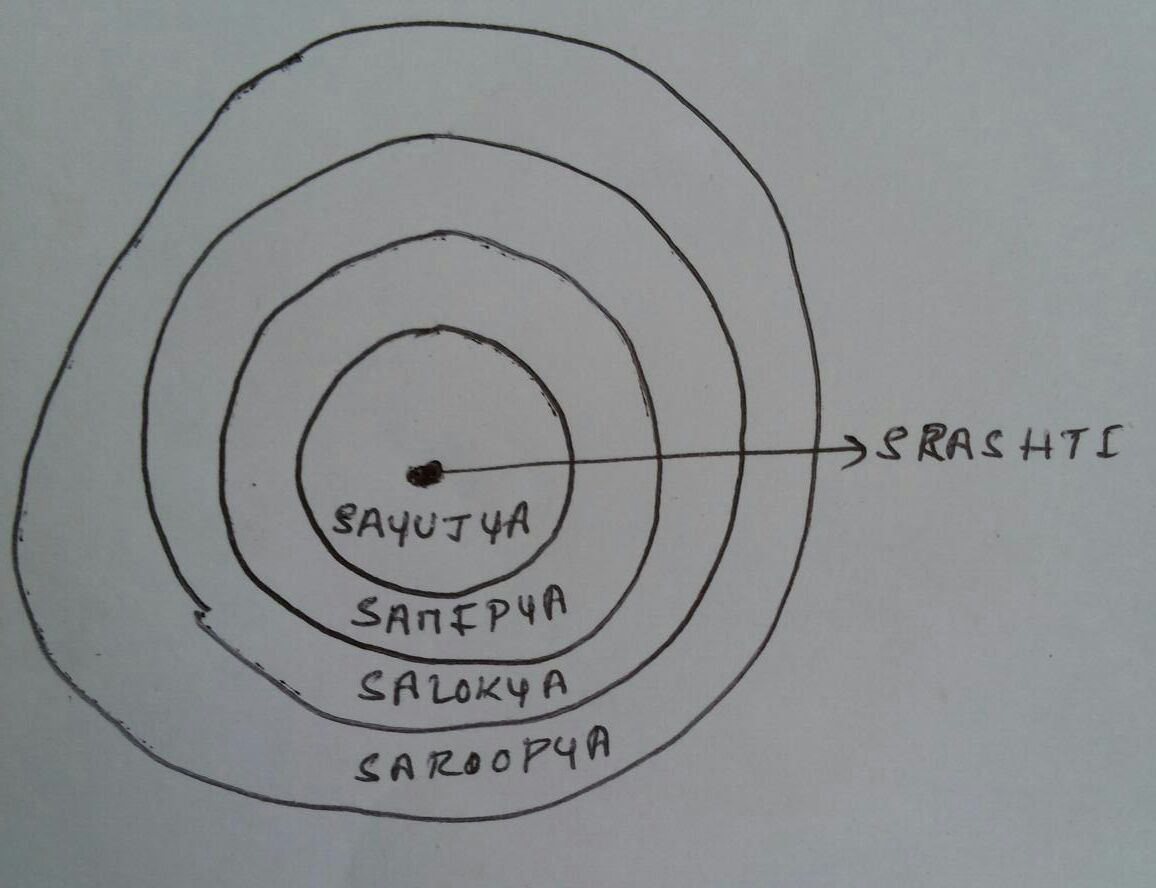 SRASHTI
SAYUJYA
SAMIPYA
SALOKYA
SAROOPYA